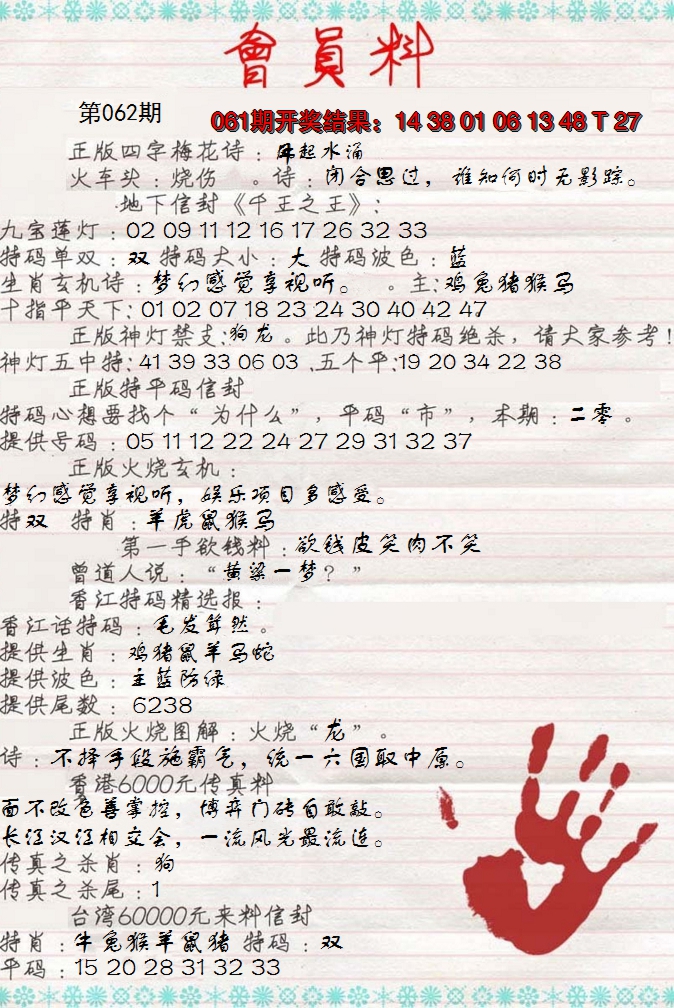 會員料
第062期
061期开奖结果：14 38 01 06 13 48 T 27
正版四字梅花诗：风起水涌
火车头：烧伤 。诗：闭合思过，谁知何时无影踪。
地下信封《千王之王》：
九宝莲灯：02 09 11 12 16 17 26 32 33
特码单双：双 特码大小：大 特码波色：蓝
生肖玄机诗：梦幻感觉享视听。 。主：鸡兔猪猴马
十指平天下：01 02 07 18 23 24 30 40 42 47
正版神灯禁支：狗龙。此乃神灯特码绝杀，请大家参考！
神灯五中特：41 39 33 06 03 、五个平：19 20 34 22 38
正版特平码信封
特码心想要找个“为什么”，平码“市”，本期：二零。
提供号码：05 11 12 22 24 27 29 31 32 37
正版火烧玄机：
梦幻感觉享视听，娱乐项目多感受。
特双 特肖：羊虎鼠猴马
第一手欲钱料：欲钱皮笑肉不笑
曾道人说：“黄粱一梦？”
香江特码精选报：
香江话特码：毛发耸然。
提供生肖：鸡猪鼠羊马蛇
提供波色：主蓝防绿
提供尾数：6238
正版火烧图解：火烧“龙”。
诗：不择手段施霸气，统一六国取中原。
香港6000元传真料
面不改色善掌控，博弈门砖自敢敲。
长江汉江相交会，一流风光最流连。
传真之杀肖：狗
传真之杀尾：1
台湾60000元来料信封
特肖：牛兔猴羊鼠猪 特码：双
平码：15 20 28 31 32 33